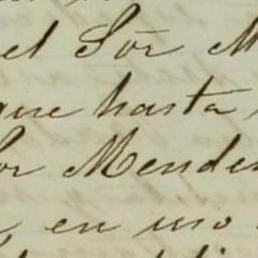 el Sōr M
que hasta
or Mendez
en uso